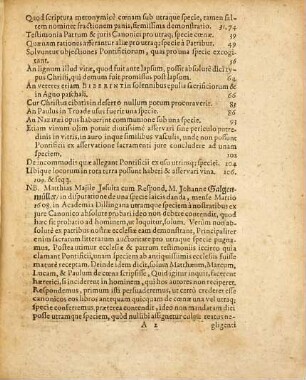 Quod scriptura metonymicè cœnam sub utraque specie, tamen saltem nomine fractionem panis, firmissima demonstratio. 31. 74
Testimonia Patrum & juris Canonici pro utraq; specie. 39
Quænam rationes afferantur aliæ pro utraq; specie à Patribus. 49
Solvuntur objectiones Pontificiorum, quæ pro una specie excogitant.
An lignum illud vitæ, quod fuit ante lapsum, possit absolutè dici typus Christi, qui demum fuit promissus post lapsum. 64
An veteres etiam BIBERINT in solennibus epulis sacrificiorum & in Agno paschali. 66
Cur Christus cibatis in deserto nullum potum procuraverit. 81
An Paulus in Troade usus fuerit una specie. 86
An Nazaræi opus habuerint communione sub una specie. 93
Etiam vinum olim potuit diutissimè asservari sine periculo perdendi in vitris, in auro inque similibus vasculis, unde non possunt Pontificii ex asservatione sacramenti jure concludere ad unam speciem.
De incommodis quæ allegant Pontificii ex usu utriusq; speciei. 104
Ubique locorum in rota terra possunt haberi & asservari vina. 106. 109. & seqq.
NB. Matthias Majile Jesuita cum Respond, M. Johanne Galgenmüller
in disputatione de una specie laicis danda, mense Martio
1603. in Academia Dillingana utramque speciem à nostratibus ex
jure Canonico absolutè probari ideo non debere contendit, quod
hæc sic probatio ad hominem, ut loquitur, solum. Verùm non absolutè
ex patribus nostræ ecclesiæ eam demonstrant. Principaliter
enim sacrarum litterarum auctoritatem pro utraque specie pugnamus.
Postea veteris ecclesiæ & patrum testimoniis incitato quia
clamant Pontificii, unam speciem ab antiquissimis ecclesiis fuisse
usurpatam. Deinde idem dicit, solum Matthæum, Marcum,
Lucam, & Paulum de cœna scripsisse, Quid igitur inquit, facerent
hæretici, si inciderent in hominem, qui hos autores non reciperet.
Respondemus, primum isti persuaderemus, ut certò crederet esse
canonicos eos libros antequam quicquam de cœna vel utraq;
specie conferremus præterea contendit, ideo non mandatum dici
posse utramque speciem, quod nullibi assignetur culpa, reatus ne-
A 2 gligenti